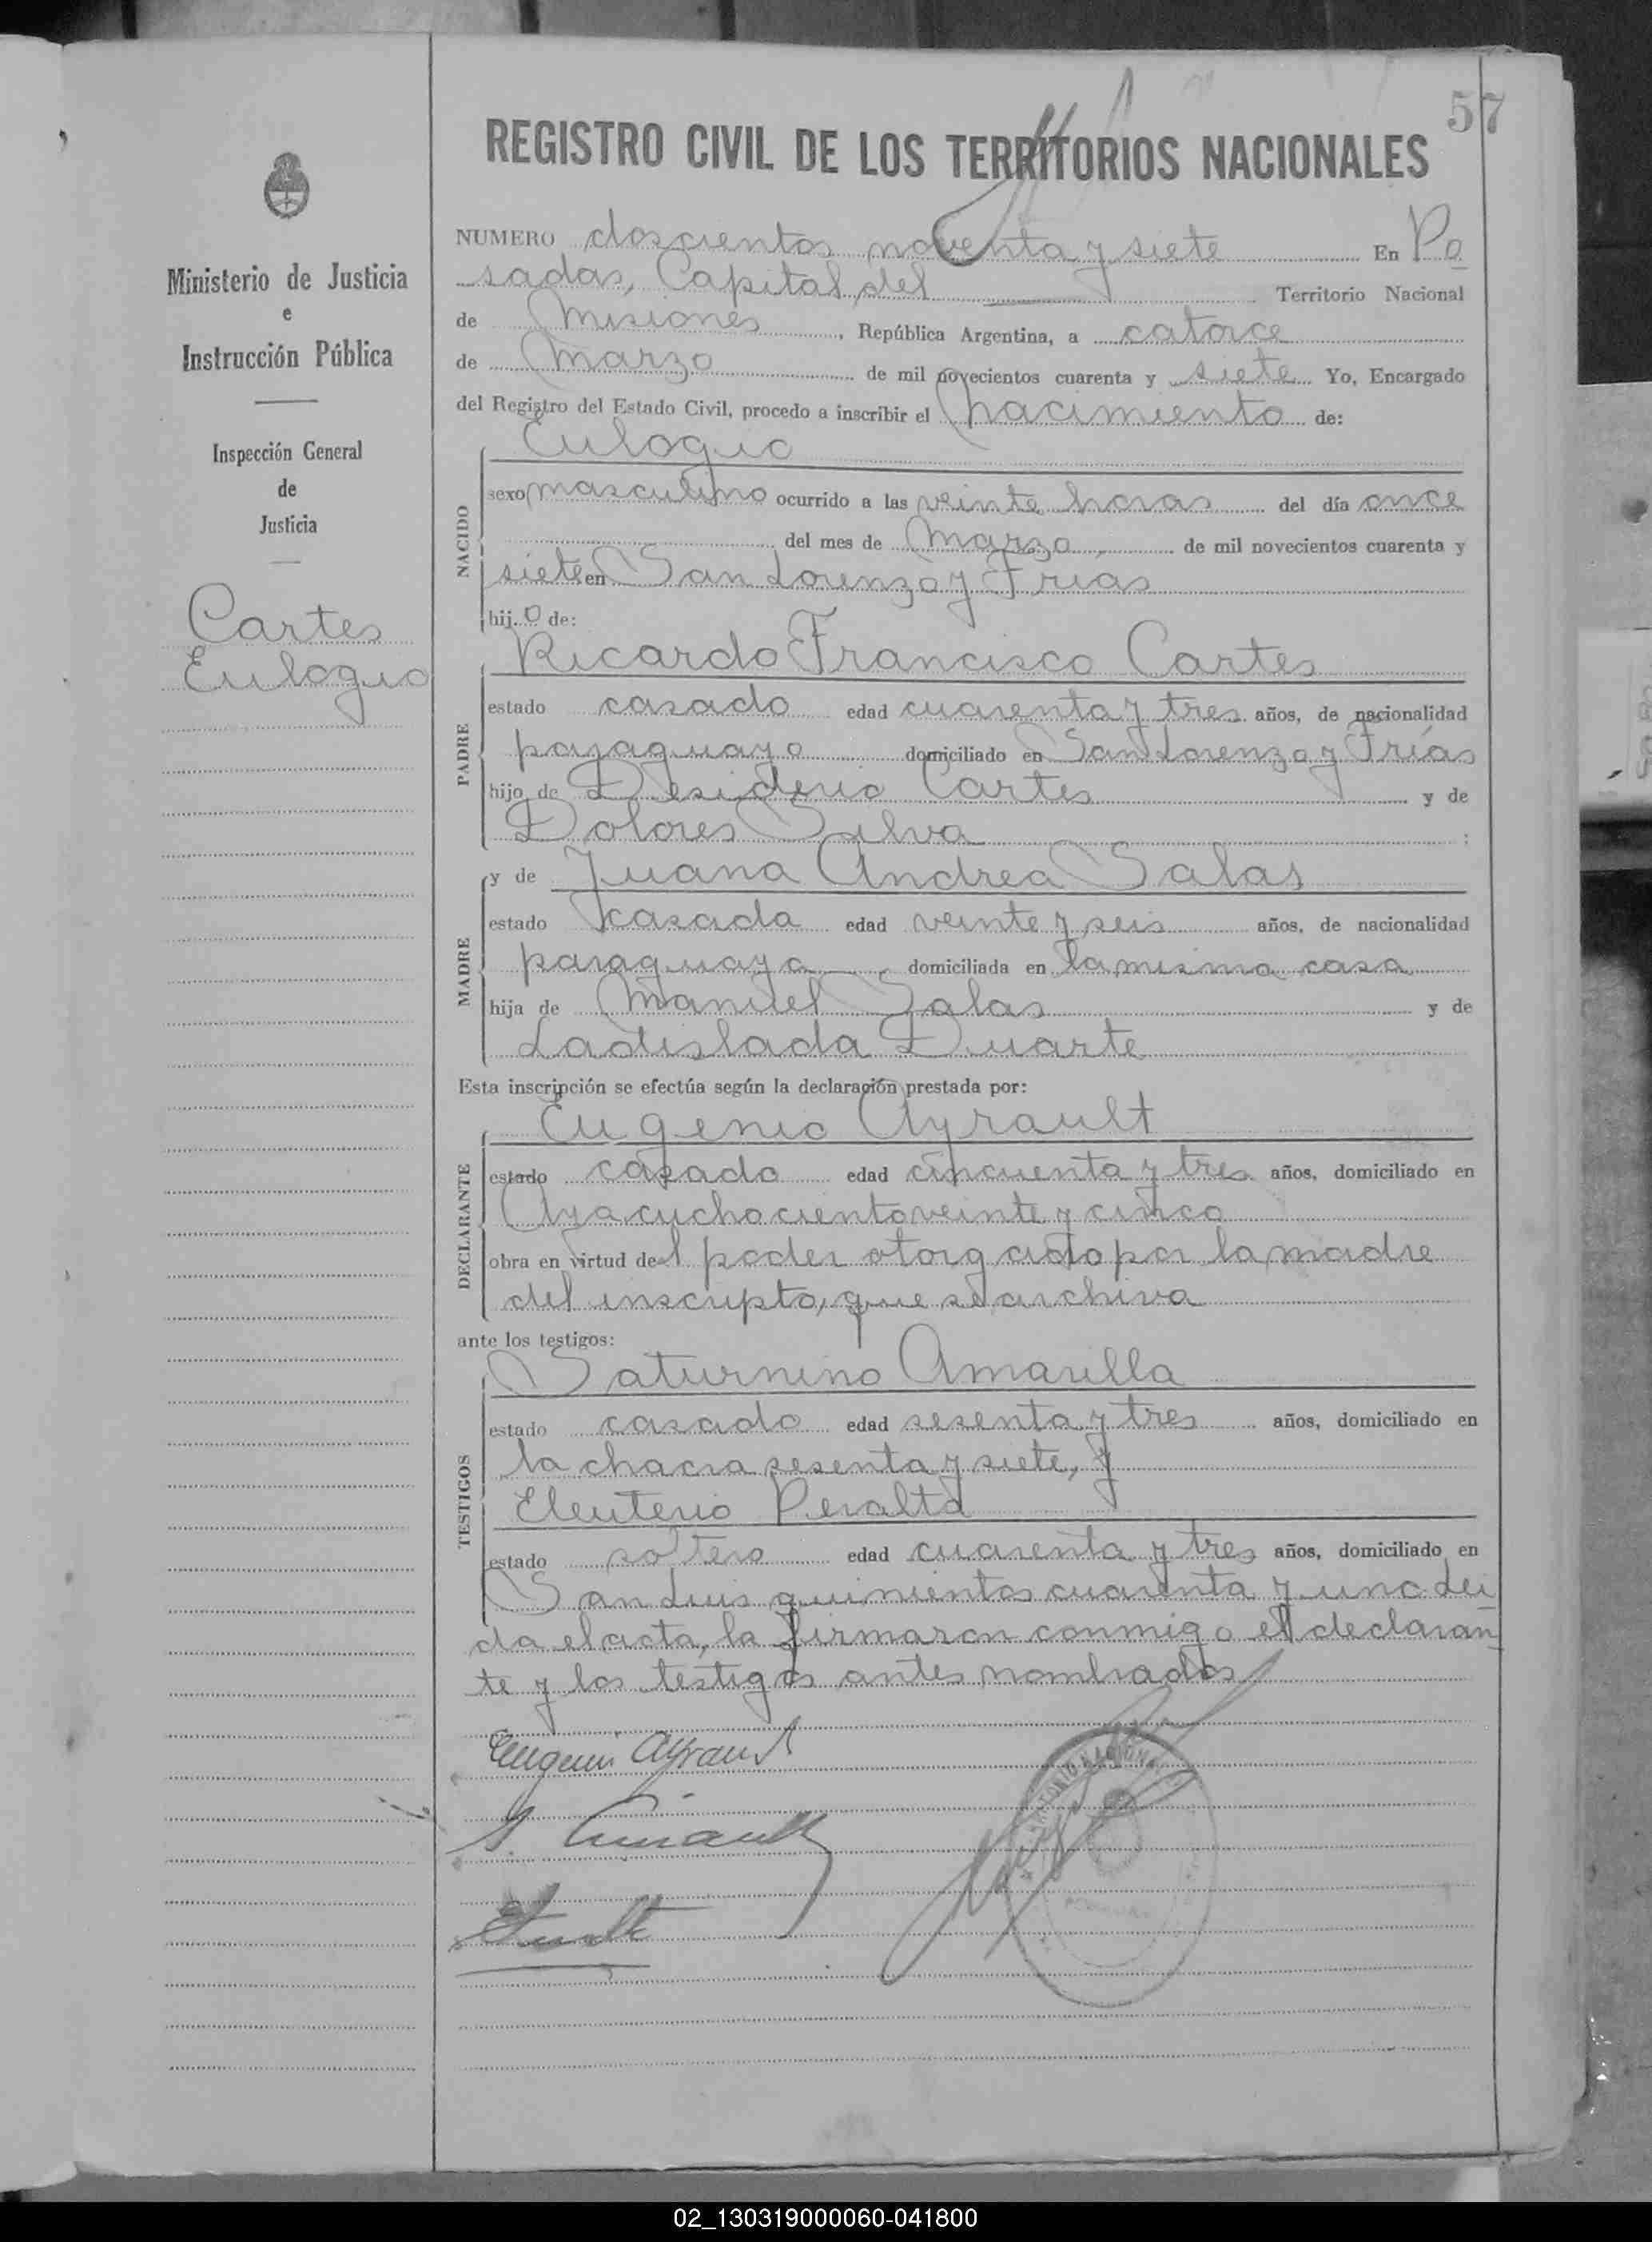 57
REGISTRO CIVIL DE LOS TERRITORIOS NACIONALES
Ministerio de Justicia
e
Instrucción Pública
Inspección General
de
Justicia
Cartes
Eulogio
NUMERO doscientos noventa y siete En Po
sadas, Capital del Territorio Nacional
de Misiones, República Argentina, a catorce
de Marzo de mil novecientos cuarenta y siete Yo, Encargado
del Registro del Estado Civil, procedo a inscribir el nacimiento de:
NACIDO
Eulogio
sexo masculino ocurrido a las veinte horas del día once
del mes de Marzo de mil novecientos cuarenta y
siete en San Lorenzo y Frias
hijo de:
PADRE
Ricardo Francisco Cartes
estado casado edad cuarenta y tres años, de nacionalidad
paraguayo domiciliado en San Lorenzo y Frías
hijo de Desiderio Cartes y de
Dolores Silva;
MADRE
y de Juana Andrea Salas
estado casada edad veinte y seis años, de nacionalidad
paraguaya, domiciliada en la misma casa
hija de Manuel Salas y de
Ladislada Duarte
Esta inscripción se efectúa según la declaración prestada por:
DECLARANTE
Eugenio Ayrault
estado casado edad cincuenta y tres años, domiciliado en
Ayacucho ciento veinte y cinco
obra en virtud del poder otorgado por la madre
del inscripto, que se archiva
ante los testigos:
TESTIGOS
Saturnino Amarilla
estado casado edad sesenta y tres años, domiciliado en
la chacra sesenta y siete, y
Eleuterio Peralta
estado soltero edad cuarenta y tres años, domiciliado en
San Luis quinientos cuarenta y uno. Lei
da el acta, la firmaron conmigo el declaran
te y los testigos antes nombrados
Eugenio Ayrault
02_130319000060-041800